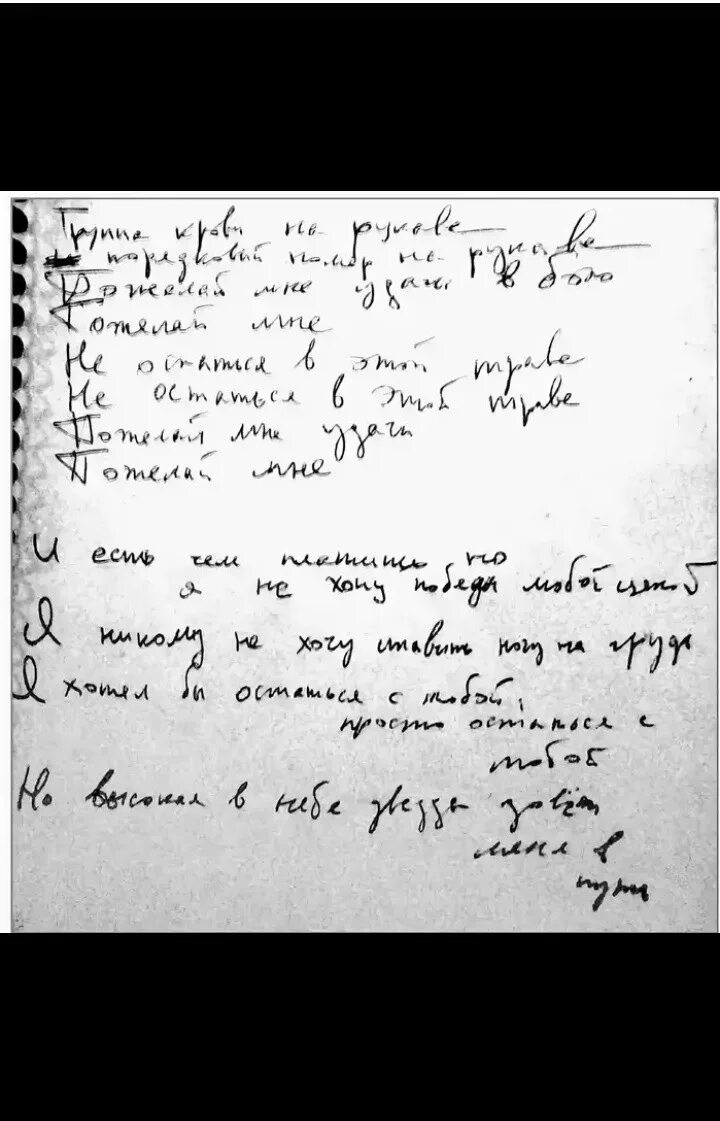 Группа крови на рукаве
порядковый номер на рукаве
Пожелай мне удачи в бою
Пожелай мне
Не остаться в этой траве
Не остаться в этой траве
Пожелай мне удачи
Пожелай мне
И есть чем платить но
я не хочу победы любой ценой
Я никому не хочу ставить ногу на грудь
Я хотел бы остаться с тобой,
просто остаться с
тобой
Но высокая в небе звезда зовёт
меня в
путь